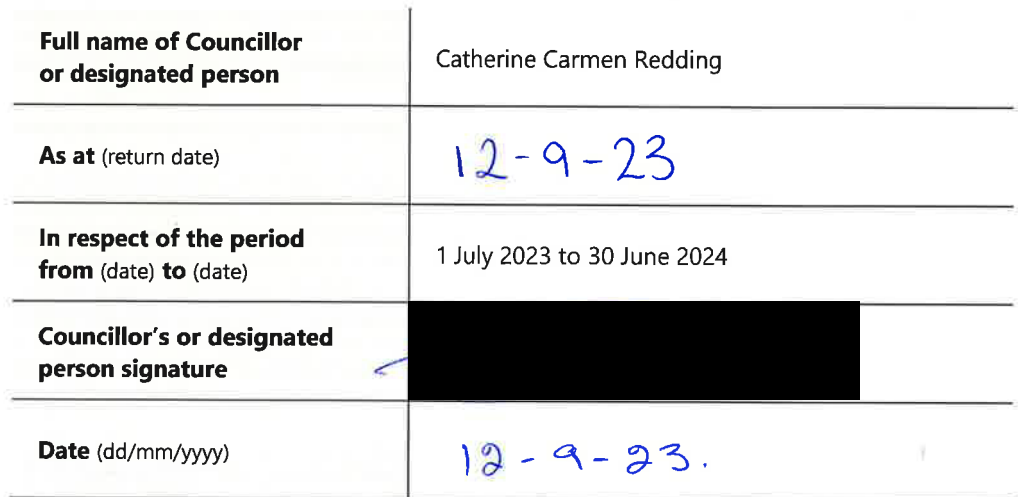 Full name of Councillor
or designated person
Catherine Carmen Redding
As at (return date)
12-9-23
In respect of the period
from (date) to (date)
1 July 2023 to 30 June 2024
Councillor's or designated
person signature
Date (dd/mm/yyyy)
12-9-23.